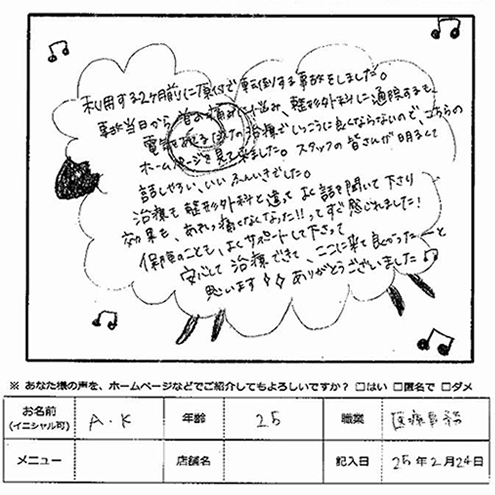 利用する2ヶ月前に原付で転倒する事故をしました。
事故当日から首の痛みが出み、整形外科に通院するも、
電気をあてるだけの治療でいっこうに良くならないので、こちらの
ホームページを見て来ました。スタッフの皆さんが明るくて
話しやすい、いいふんいきでした。
治療も整形外科と違って、よく話を聞いて下さり
効果も、あれっ痛くなくなった!!ってすぐ感じれました!
保険のことも、よくサポートして下さって
安心して治療できて、ここに来て良かったーと
思います ありがとうございました
※ あなた様の声を、ホームページなどでご紹介してもよろしいですか? □はい □匿名で □ダメ
お名前 (イニシャル可) A.K 年齢 25 職業 医療事務
メニュー 店舗名 記入日 25年2月24日